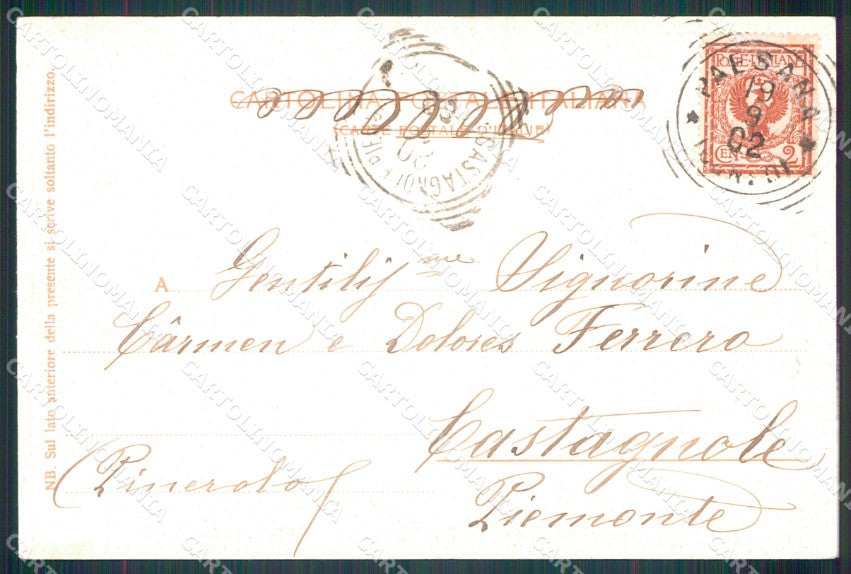 CARTOLINA POSTALE ITALIANA
(CARTE POSTALE D'ITALIE)
POSTE ITALIANE
CENT. 2
PAESANA
19
9
02
CASTAGNOLE PIEM
A Gentilijme Signorine
Cârmen e Dolores Ferrero
Castagnole
(Pinerolo)
Piemonte
NB. Sul lato anteriore della presente si scrive soltanto l'indirizzo.
CARTOLINOMANIA